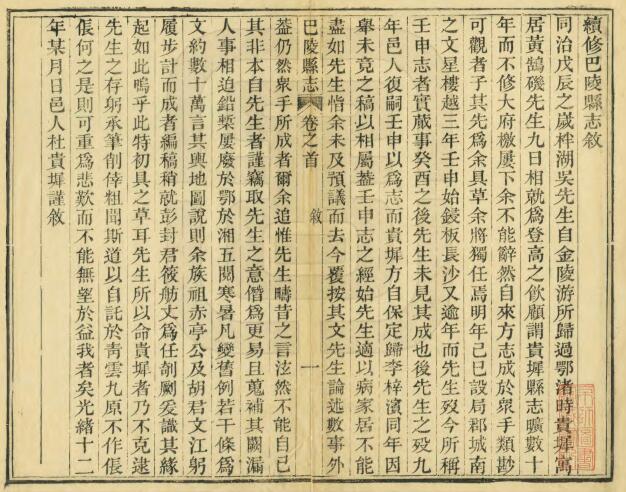 續修巴陵縣志敘
同治戊辰之歲柈湖吳先生自金陵游所歸過鄂渚時貴墀寓
居黃鵠磯先生九日相就爲登高之飲顧謂貴墀縣志曠數十
年而不修大府檄屢下余不能辭然自來方志成於衆手類尠
可觀者子其先爲余具草余將獨任焉明年己巳設局郡城南
之文星樓越三年壬申始鋟板長沙又逾年而先生歿今所稱
壬申志者實蕆事癸酉之後先生未見其成也後先生之歿九
年邑人復嗣壬申以爲志而貴墀方自保定歸李梓濱同年因
舉未竟之稿以相屬蓋壬申志之經始先生適以病家居不能
盡如先生恉余未及預議而去今覆按其文先生論述數事外
巴陵縣志 卷之首 敘 一
葢仍然衆手所成者爾余追惟先生疇昔之言泫然不能自己
其非本自先生者謹竊取先生之意僭爲更易且蒐補其闕漏
人事相迫鉛槧屢廢於鄂於湘五閱寒暑凡變舊例若干條爲
文約數十萬言其輿地圖說則余族祖赤亭公及胡君文江躬
履步計而成者編稿稍就彭封君筱舫丈爲任剞劂爰識其緣
起如此嗚乎此特初具之草耳先生所以命貴墀者乃不克逮
先生之存躬承筆削倖粗聞斯道以自託於靑雲九原不作倀
倀何之是則可重爲悲歎而不能無望於益我者矣光緒十二
年某月日邑人杜貴墀謹敘